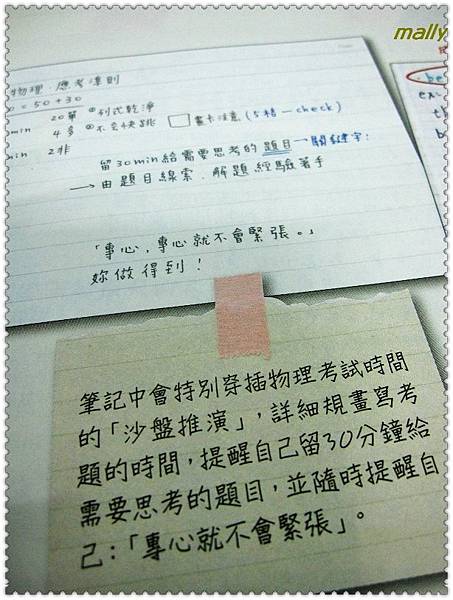 mally
物理 應考準則
= 50 + 30
min 20單 列式乾淨
4多 不会快跳 畫卡注意(5格一check)
min 2非
留30min給需要思考的題目→關鍵字!
→由題目線索、解題經驗著手
「專心,專心就不會緊張。」
妳做得到!
be
ex:
th
b
筆記中會特別穿插物理考試時間
的「沙盤推演」,詳細規畫寫考
題的時間,提醒自己留30分鐘給
需要思考的題目,並隨時提醒自
己:「專心就不會緊張」。